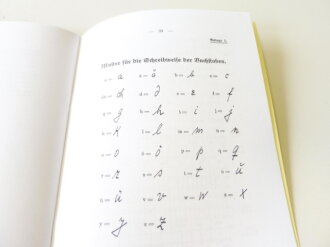 — 20 —
Anlage 1.
Muster für die Schreibweise der Buchstaben.
a = a ä = ä b = b c = c
d = d e = e f = f
g = g h = h i = i j = j
k = k l = l m = m n = n
o = o ö = ö p = p q = q
r = r s = s t = t u = u
ü = ü v = v w = w x = x
y = y z = z